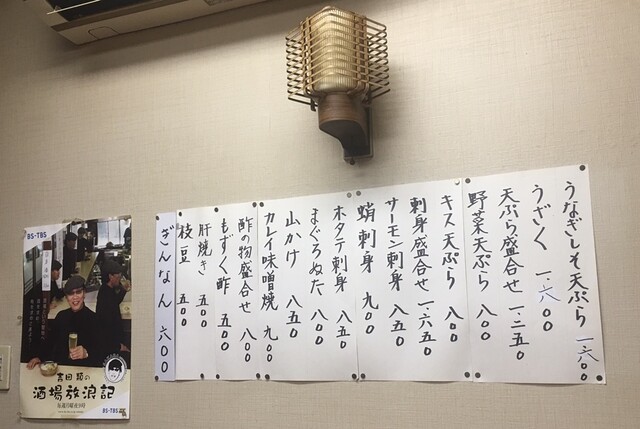 うなぎしそ天ぷら 一・六〇〇
うざく 一・六〇〇
天ぷら盛合せ 一・三五〇
野菜天ぷら 八〇〇
キス天ぷら 八〇〇
刺身盛合せ 一・六五〇
サーモン刺身 八五〇
蛸刺身 九〇〇
ホタテ刺身 八五〇
まぐろぬた 八〇〇
山かけ 八五〇
カレイ味噌焼 九〇〇
酢の物盛合せ 八〇〇
もずく酢 五〇〇
肝焼き 五〇〇
枝豆 五〇〇
ぎんなん 六〇〇
BS-TBS
吉田類の
酒場放浪記
毎週月曜夜9時
BS-TBS